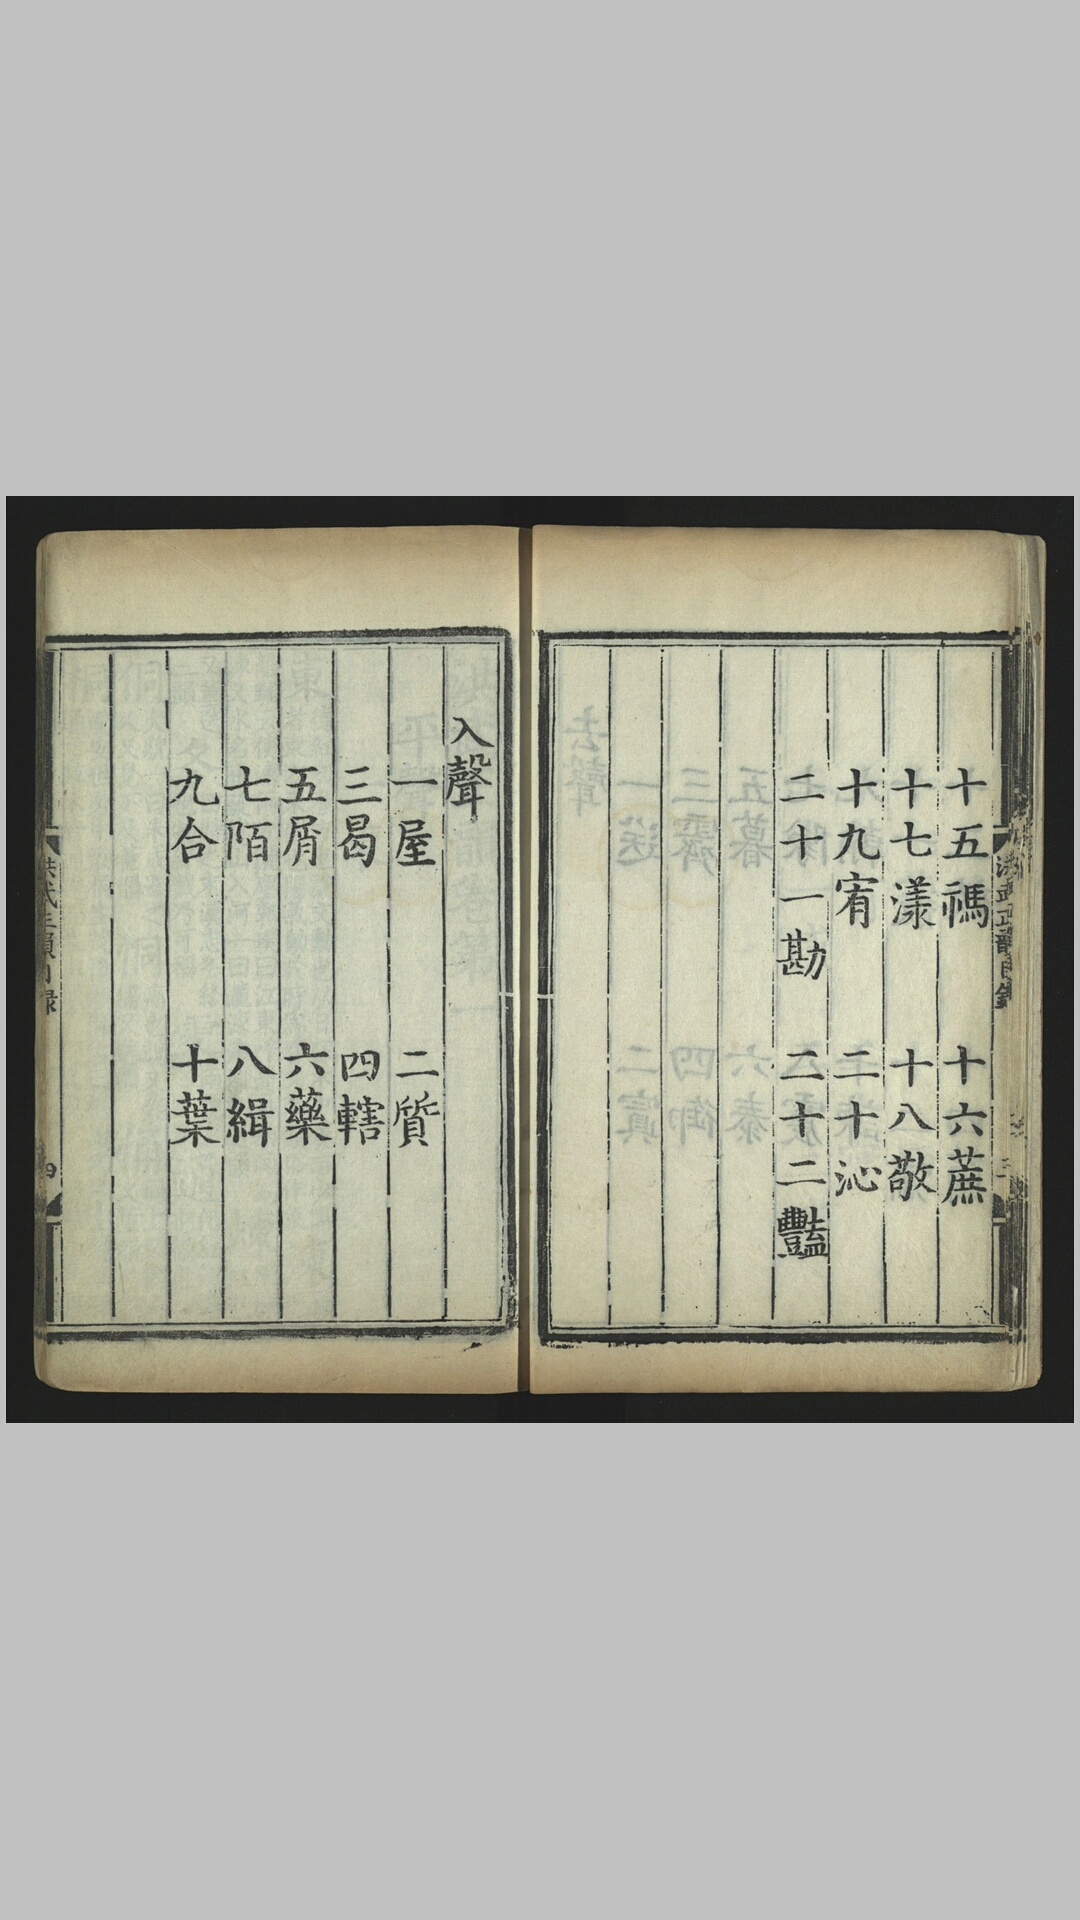 十五禡 十六蔗
十七漾 十八敬
十九宥 二十沁
二十一勘 二十二豔
入聲
一屋 二質
三曷 四轄
五屑 六藥
七陌 八緝
九合 十葉
洪武正韻目錄
四